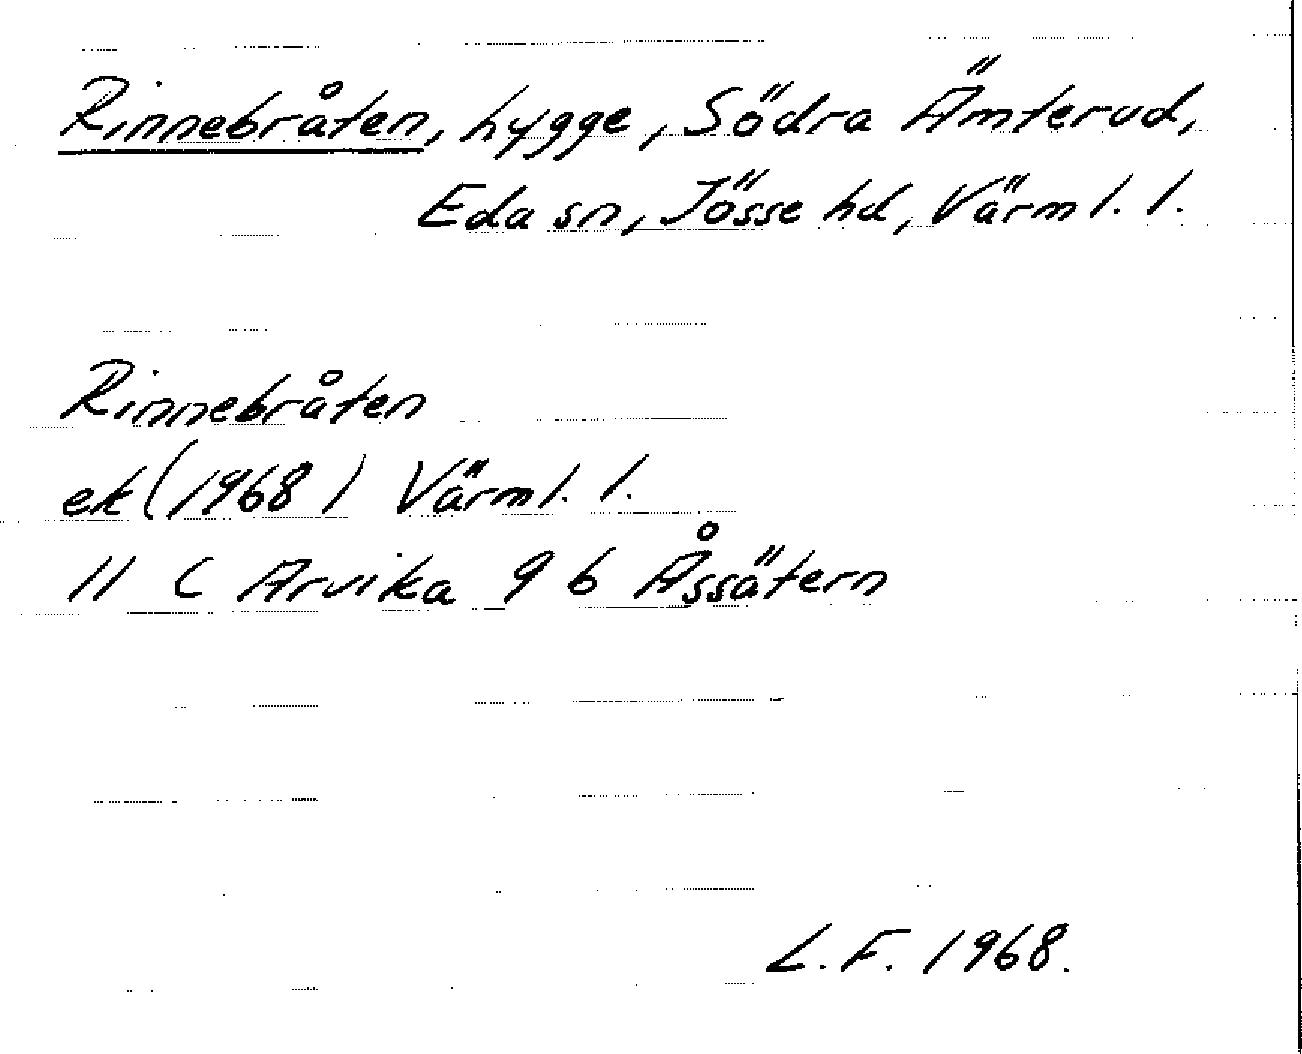 Rinnebråten, hygge, Södra Ämterud,
Eda sn, Jösse hd, Värml. l.
Rinnebråten
ek (1968) Värml. l.
11 C Arvika 9 b Åssätern
L. F. 1968.